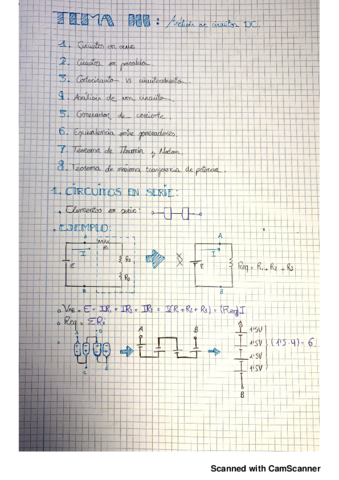 TEMA III: Análisis de circuitos DC.
1. Circuitos en serie
2. Circuitos en paralelo
3. Cortocircuito vs circuito abierto
4. Análisis de un circuito
5. Generador de corriente
6. Equivalencia entre generadores
7. Teorema de Thevenin y Norton
8. Teorema de máxima transferencia de potencia.
1. CIRCUITOS EN SERIE:
. Elementos en serie:
. EJEMPLO:
A A
I I
R1 R2 R3 E
Req = R1 + R2 + R3
B B
VAB = E = IR1 + IR2 + IR3 = I(R1 + R2 + R3) = (Req)I
Req = ΣRi
A B A
1'5V
1'5V
1'5V
1'5V
(1'5·4) = 6
B
Scanned with CamScanner